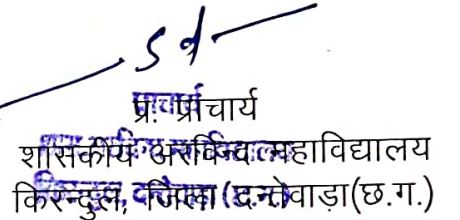 Sd
प्र. प्राचार्य
शासकीय अरविन्द महाविद्यालय
किरन्दुल, जिला (द.न्तेवाड़ा(छ.ग.)